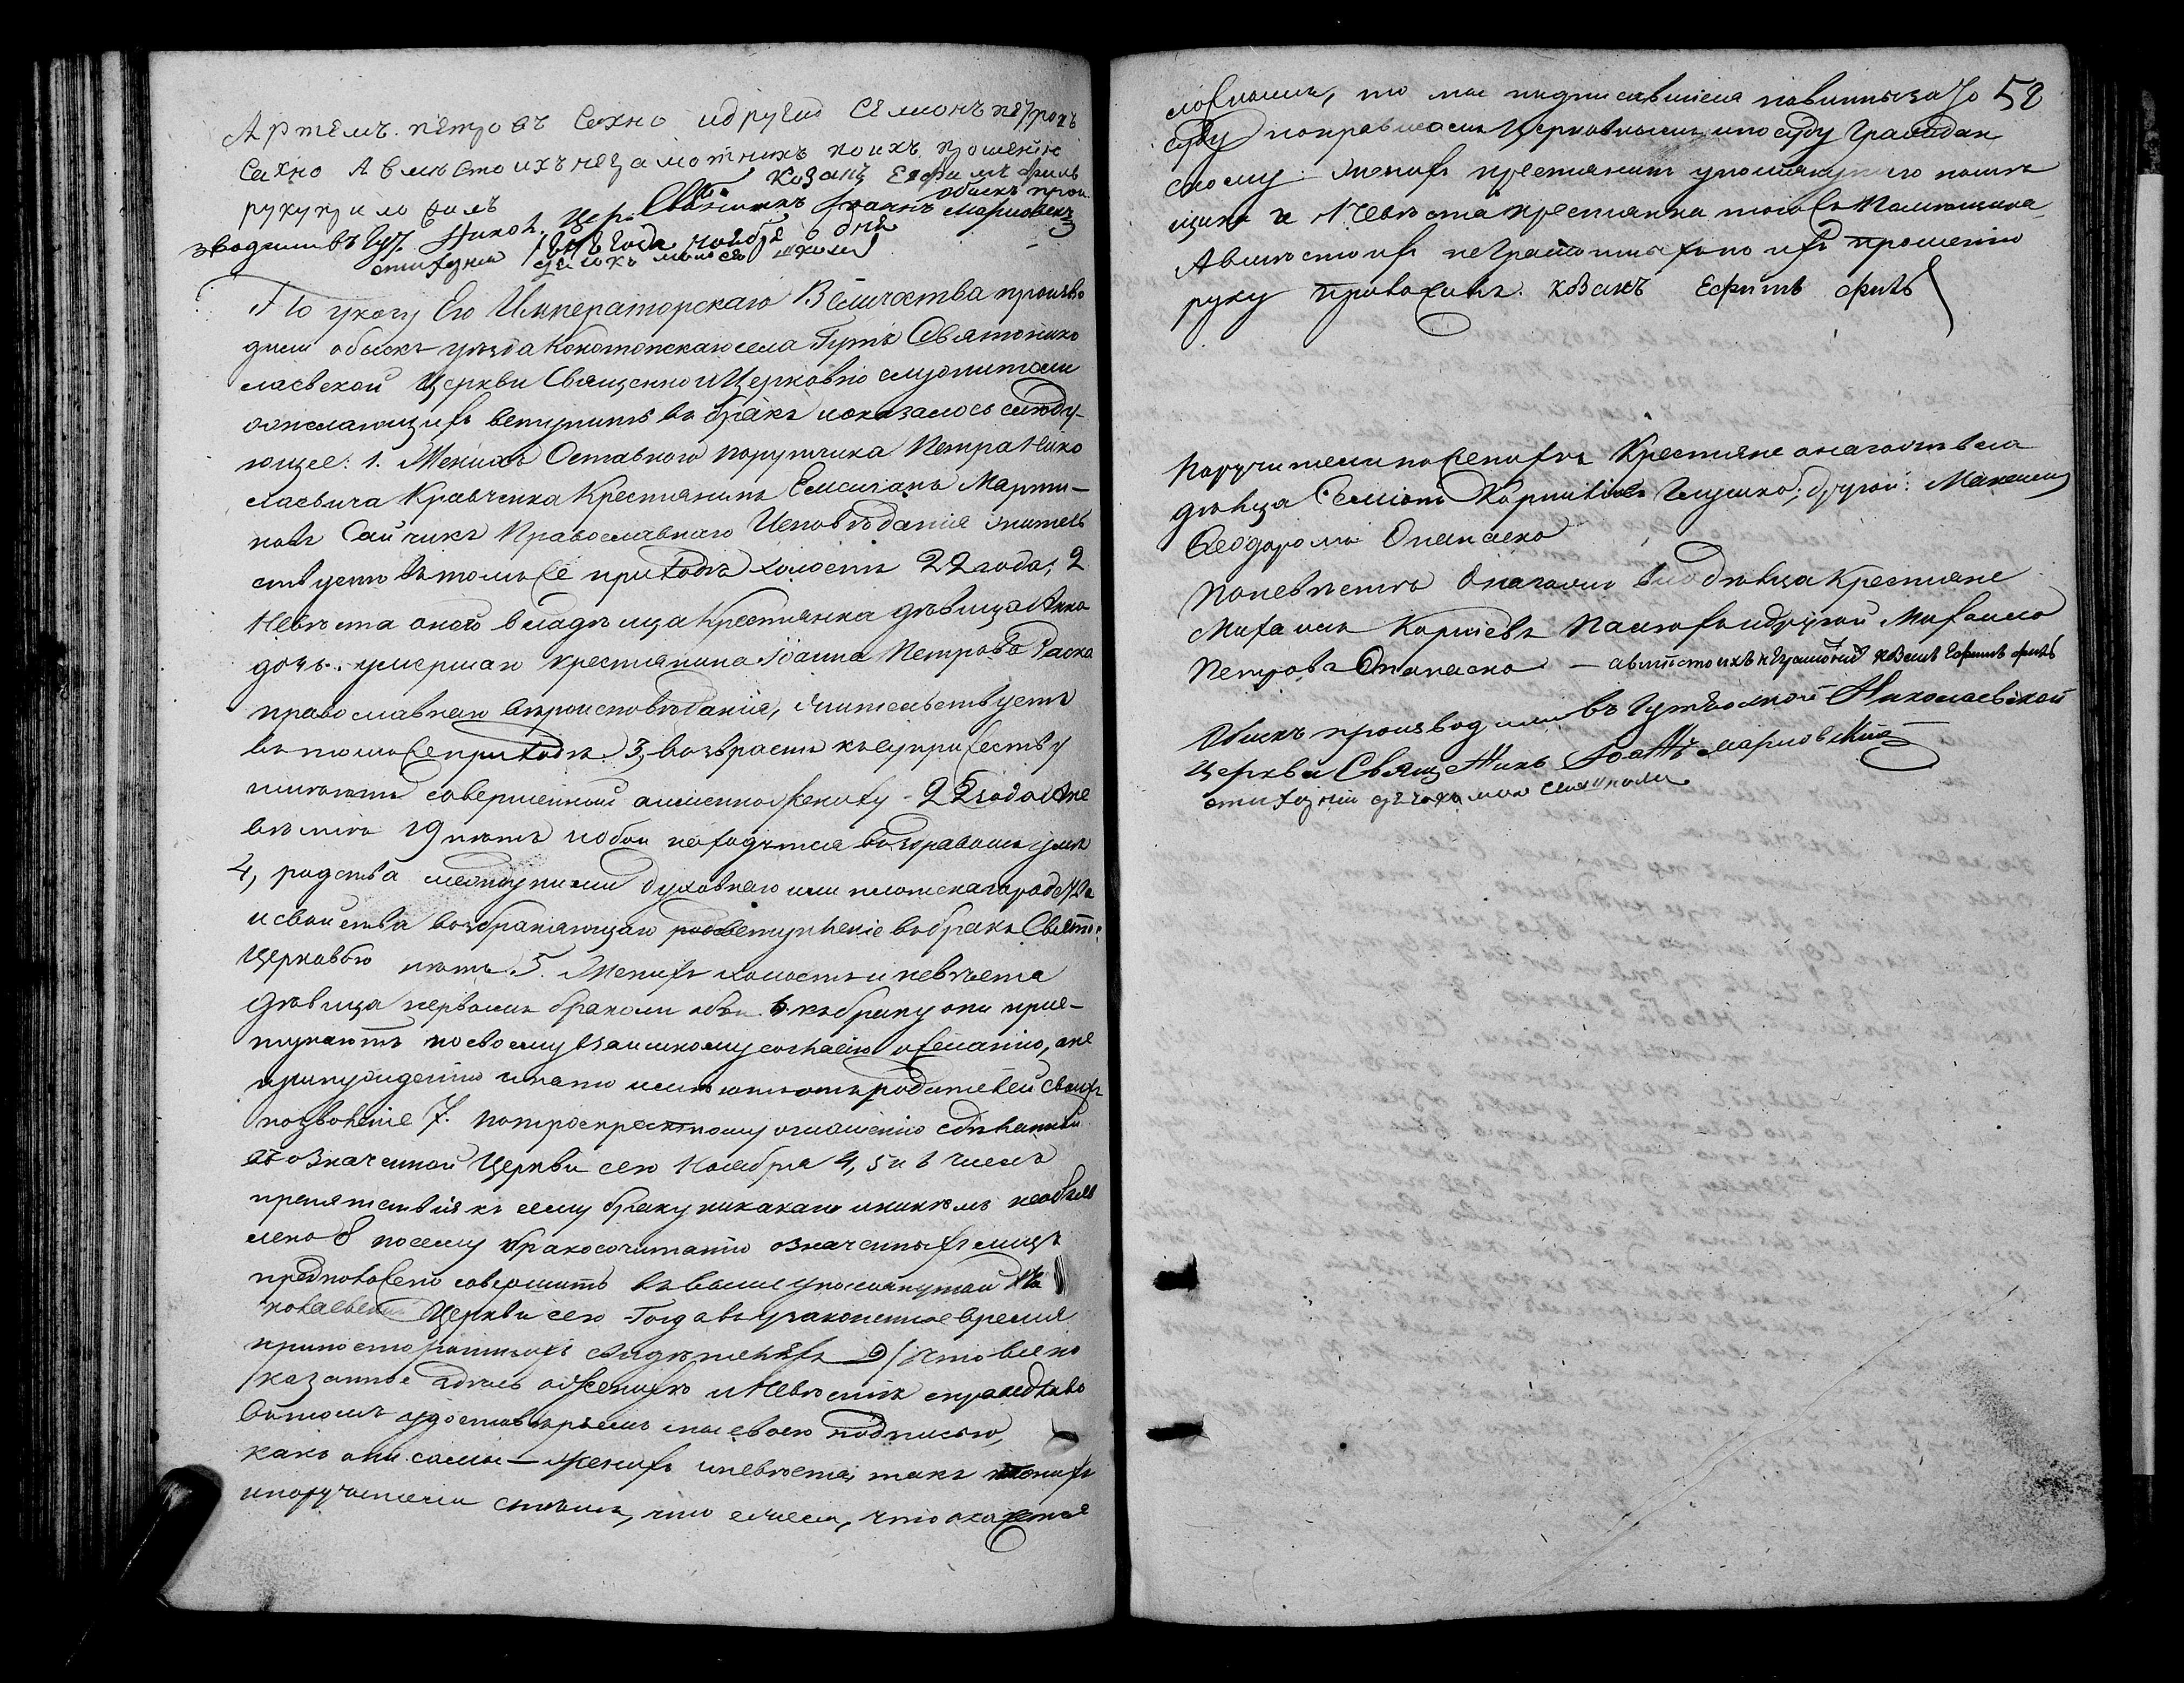 Артемъ Петровъ Сахно идругий Семионъ петровъ
Сахно Авместоихънеграмотнихъ поихъ прошению
руку приложилъ Козакъ Ефимъ Филь
Обыскъ прои
зводилъвъ Гут. Никол. Цер. Священникъ Іоаннъ Марновскій
1818 года ноября 6 дня
По указу Его Императорскаго Величества произво
дили обыскъ уѣзда Конотопскаго села Гутъ Святонико
лаевской Церкви Священно иЦерковно служители
ожелающихъ вступить въ бракъ ипоказалось слѣду-
ющее: 1. Женихъ Отставного порутчика Петра Нико
лаевича Кравченка Крестьянинъ Емелианъ Марти-
новъ Православнаго Исповѣдания жител
ствуетъ Вътомъже приходѣ холостъ 22 года; 2
Невѣста оного владѣлца Крестьянка дѣвица Анна
дочь умершаго крестьянина Iоанна Петрова
православнаго вѣроисповѣдания, жительствуетъ
въ томъжеприходѣ 3, возврастъ къ супружеству
имѣютъ совершенной аименно женихъ - 22 года Ане
вѣста 19 лѣтъ иобои находятся въздравомъ умѣ
4, родства междуними духовнаго или плотскагородства
исвойства возбраняющаго вступление вбракъ Святою
Церковью нѣтъ 5. Женихъ холостъ и невѣста
дѣвица первымъ бракомъ оба 6 къбраку они прис-
тупаютъ посвоему взаимному согласию ижеланию, ане
принуждению инато имѣютъ отъродителей своихъ
позволение 7. потроекратному оглашению сдѣланному
въ означенной Церкви сего Ноября 4, 5 и 6 чиселъ
препятствия къ сему браку никакаго иникемъ необъяв
лено 8 посему бракосочитанию означенныхъ лицъ
предположено совершить въ выше упомянутой Ни
колаевской Церкви сего Года въ узаконенное время
припостороннихъ свидѣтеляхъ 9/ Что все по
казанное здѣсь о женихѣ и Невѣстѣ справедливо
Вътомъ удостовѣряемъ мы своею подписью,
какъ они сами — женихъ иневѣста, такъ ипонихъ
ипоручители стѣмъ, что ежели, что окажется
ложнымъ, то мы подписавшися повинны зато 52
суду поправиламъ Церковнымъ ипо суду Граждан
скому: женихъ крестьянинъ упомянутого помѣ
щика и Невѣста крестьянка тогожъ Помѣщика
Авмѣстоихъ неграмотныхъ по ихъ прошению
руку приложилъ козакъ Ефимъ Филь
Поручители по женихѣ Крестьяне онагожъ вла
дѣлца Семионъ Глушко; другой: Максимъ
Феодоровъ Опанаско
Поневѣстѣ Онагожъ владѣлца Крестьяне
Михаилъ идругой Михаило
Петровъ Опанаско — авместоихъ неграмотныхъ козакъ Ефимъ филь
Обыскъ производили въ Гутѣвской Николаевской
Церкви Священникъ Іоаннъ Марновский